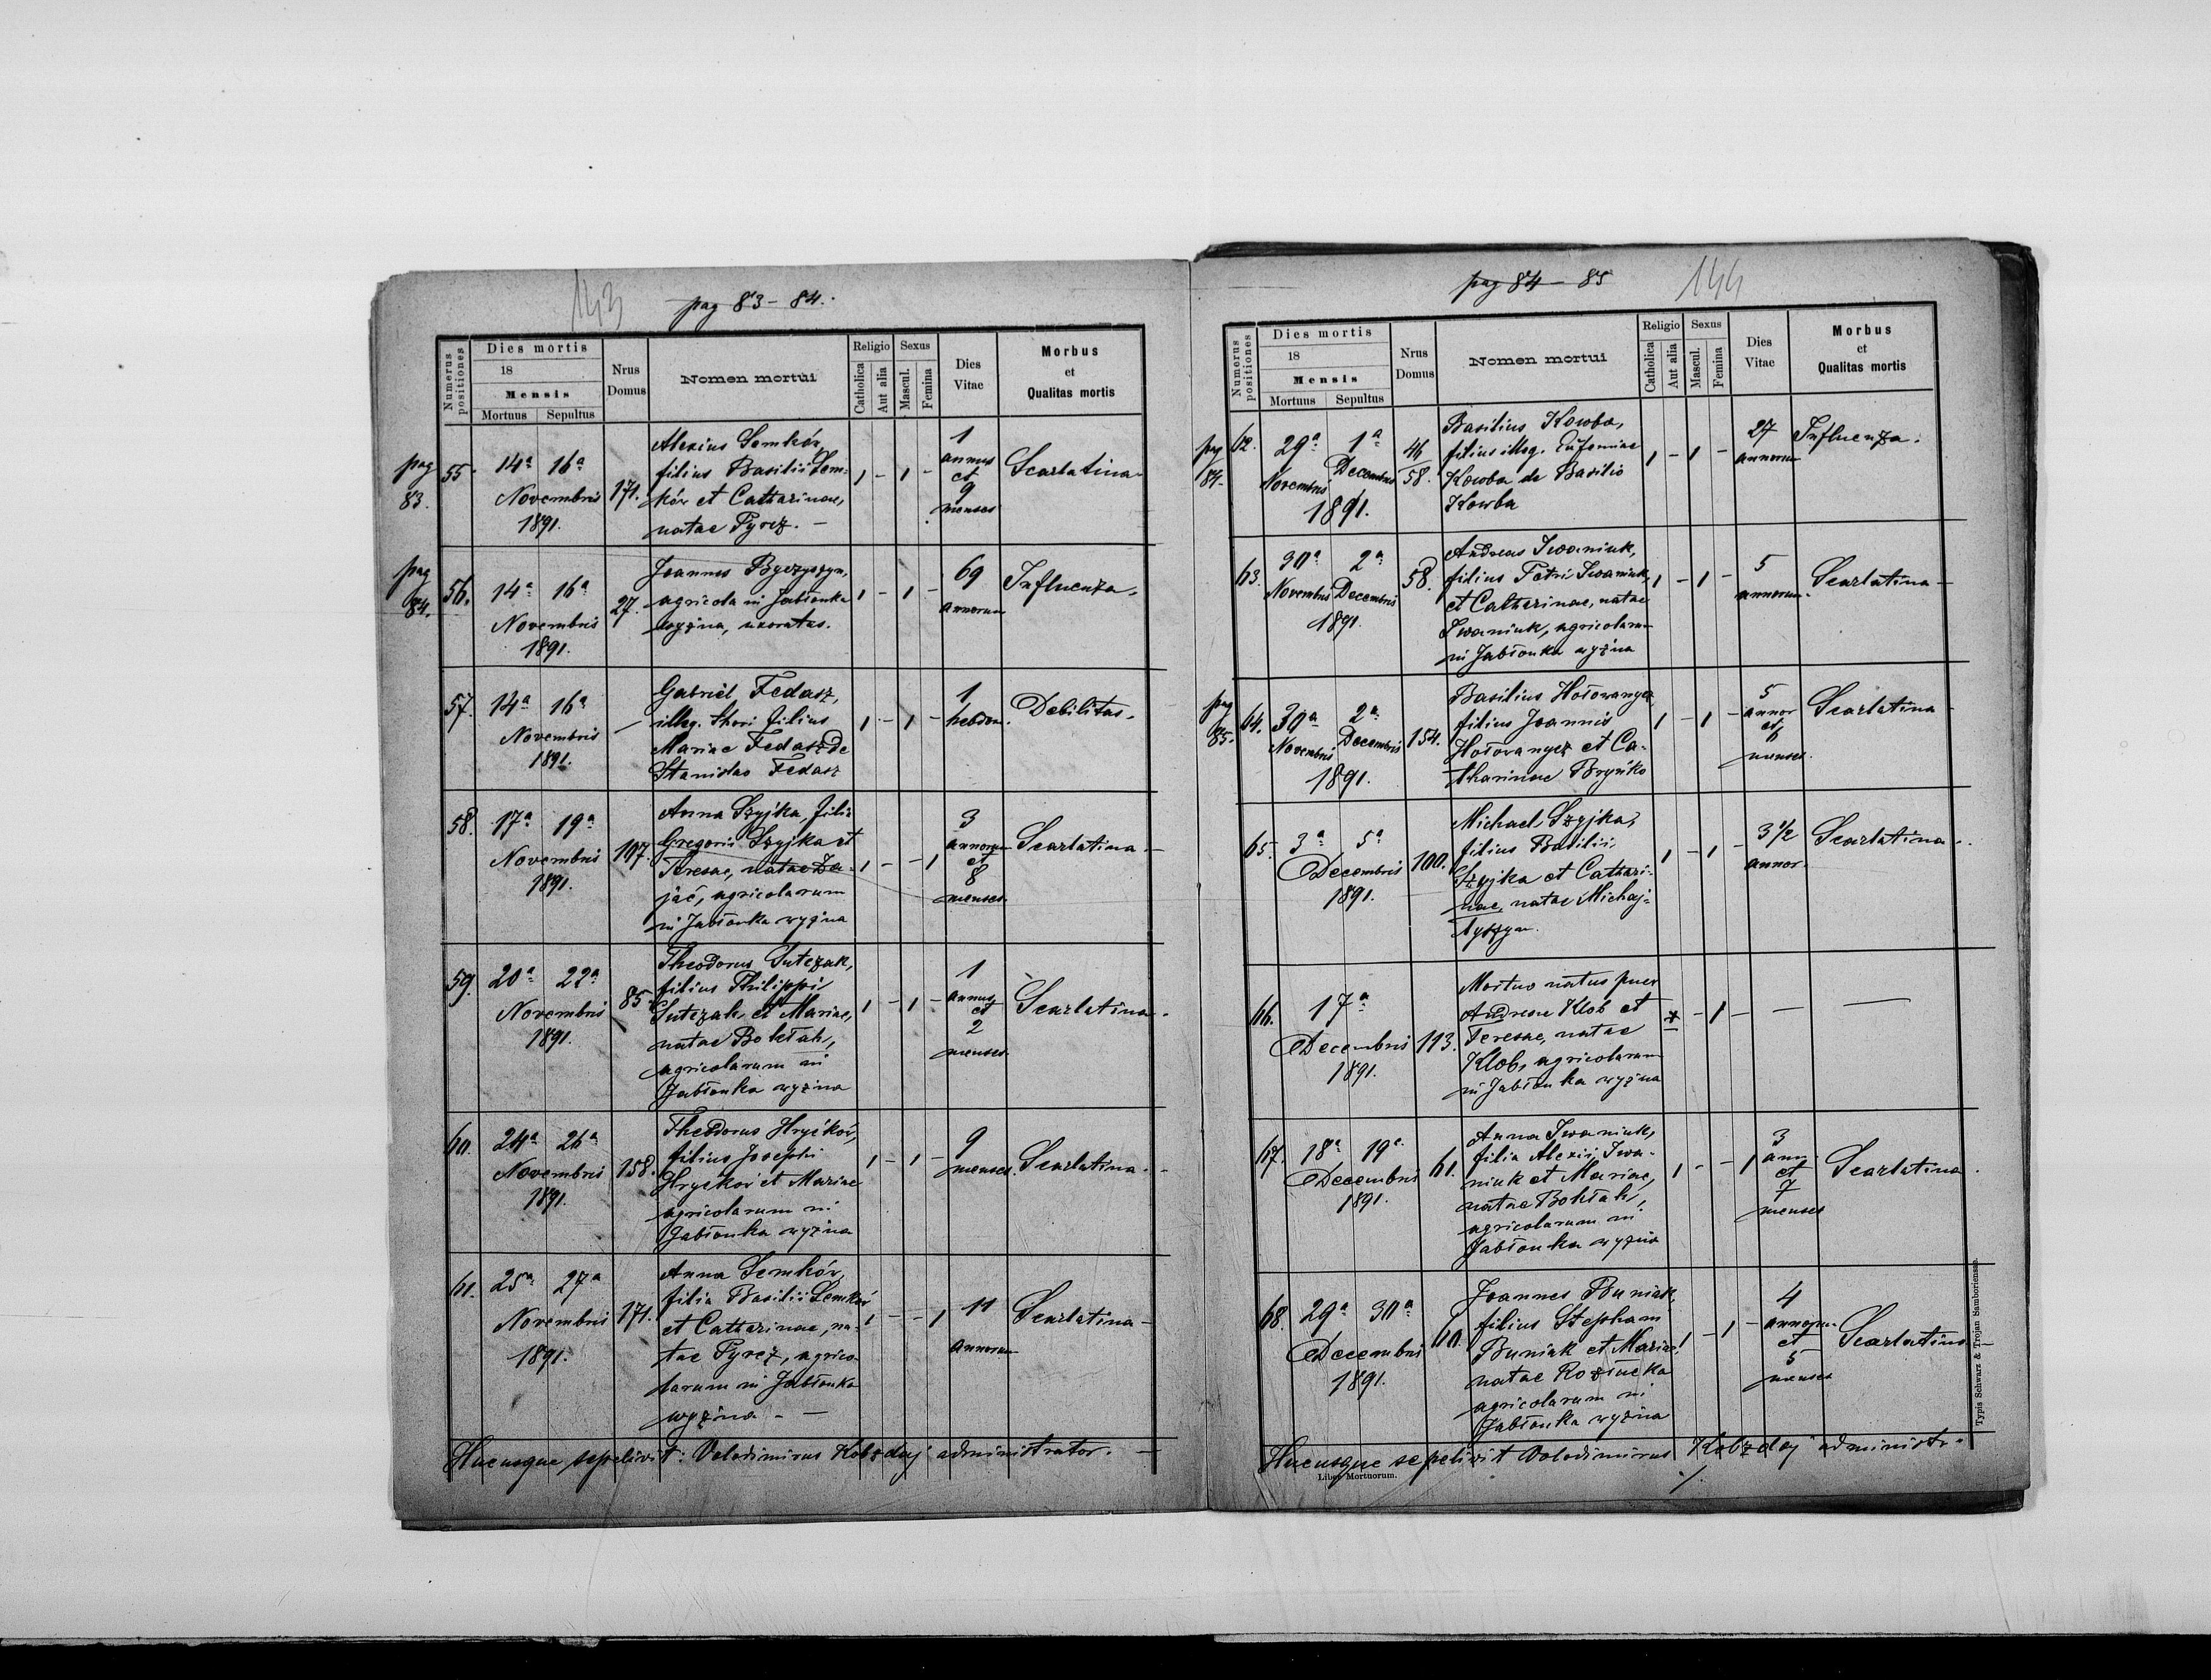 143
pag 83 - 84.
Numerus positiones
Dies mortis
18
Mensis
Mortuus Sepultus
Nrus Domus
Nomen mortui
Religio
Catholica
Aut alia
Sexus
Mascul.
Femina
Dies Vitae
Morbus
et
Qualitas mortis
pag 83.
55. 14a 16a Novembris 1891. 171.
Alexius Semków,
filius Basilii Sem-
ków et Catharinae,
natae Pyrcz. —
1 - 1 -
1 annus et 9 menses
Scarlatina
pag 84.
56. 14a 16a Novembris 1891. 27.
Joannes
agricola in Jabłonka
wyżna, uxoratus.
1 - 1 -
69 annorum
Influenza.
57. 14a 16a Novembris 1891. —
Gabriel Fedasz,
illeg. thori filius
Mariae Fedasz de
Stanislao Fedasz
1 - 1 -
1 hebdom.
Debilitas.
58. 17a 19a Novembris 1891. 107.
Anna Szyjka, filia
Gregorii Szyjka et
Teresae, natae Za-
jać, agricolarum
in Jabłonka wyżna
1 - - 1
3 annorum et 8 menses
Scarlatina —
59. 20a 22a Novembris 1891. 85.
Theodorus Sutczak,
filius Philippi
Sutczak et Mariae,
natae Bokłah,
agricolarum in
Jabłonka wyżna
1 - 1 -
1 annus et 2 menses
Scarlatina.
60. 24a 26a Novembris 1891. 158.
Theodorus Hryćkow,
filius Josephi
Hryćkow et Mariae
agricolarum in
Jabłonka wyżna
1 - 1 -
9 menses.
Scarlatina.
61. 25a 27a Novembris 1891. 171.
Anna Semków,
filia Basilii Semków
et Catharinae, na-
tae Pyrcz, agrico-
larum in Jabłonka
wyżna - —
1 - - 1
11 annorum
Scarlatina —
Hucusque sepelivit: Volodimirus Kobzdaj administrator. —
pag 84 - 85
144
Numerus positiones
Dies mortis
18
Mensis
Mortuus Sepultus
Nrus Domus
Nomen mortui
Religio
Catholica
Aut alia
Sexus
Mascul.
Femina
Dies Vitae
Morbus
et
Qualitas mortis
pag 84.
62. 29a Novembris 1a Decembris 1891. 58.
Basilius Kowba,
filius illeg. Eufemiae
Kowba de Basilio
Kowba
1 - 1 -
27 annorum
Influenza.
63. 30a Novembris 2a Decembris 1891. 58.
Andreas Iwaniuk,
filius Petri Iwaniuk,
et Catharinae, natae
Iwaniuk, agricolarum
in Jabłonka wyżna
1 - 1 -
5 annorum.
Scarlatina —
pag 85.
64. 30a Novembris 2a Decembris 1891. 154.
Basilius Hołowanycz
filius Joannis
Hołowanycz et Ca-
tharinae Bryńko
1 - 1 -
5 annor et 6 menses.
Scarlatina -
65. 3a 5a Decembris 1891. 100.
Michael Szyjka,
filius Basilii
Szyjka et Cathari-
nae, natae Michaj-
łyszyn.
1 - 1 -
3 1/2 annor.
Scarlatina.
66. 17a Decembris 1891. 113.
Mortuo natus puer
Andreae Klob et
Teresae, natae
Klob, agricolarum
in Jabłonka wyżna
- 1 - — —
67. 18a 19a Decembris 1891. 61.
Anna Iwaniuk,
filia Alexii Iwa-
niuk et Mariae,
natae Bokłah,
agricolarum in
Jabłonka wyżna
1 - - 1
3 ann. et 7 menses
Scarlatina.
68. 29a 30a Decembris 1891. 60.
Joannes Buniak,
filius Stephani
Buniak et Mariae
natae
agricolarum in
Jabłonka wyżna
1 - 1 -
4 annorum et 5 menses
Scarlatina —
Hucusque sepelivit Volodimirus Kobzdaj administr.
Liber Mortuorum.
Typis Schwarz & Trojan Samboriensae.